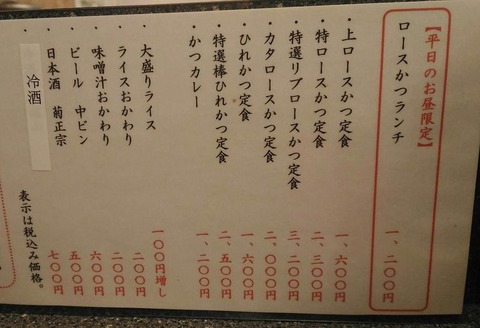 【平日のお昼限定】
ロースかつランチ 一、二〇〇円
・上ロースかつ定食 一、六〇〇円
・特ロースかつ定食 二、三〇〇円
・特選リブロースかつ定食 三、二〇〇円
・カタロースかつ定食 二、〇〇〇円
・ひれかつ定食 一、六〇〇円
・特選棒ひれかつ定食 二、五〇〇円
・かつカレー 一、二〇〇円
大盛りライス 一〇〇円増し
・ライスおかわり 二〇〇円
・味噌汁おかわり 二〇〇円
・ビール 中ビン 六〇〇円
・日本酒 菊正宗 五〇〇円
冷酒 七〇〇円
表示は税込み価格。